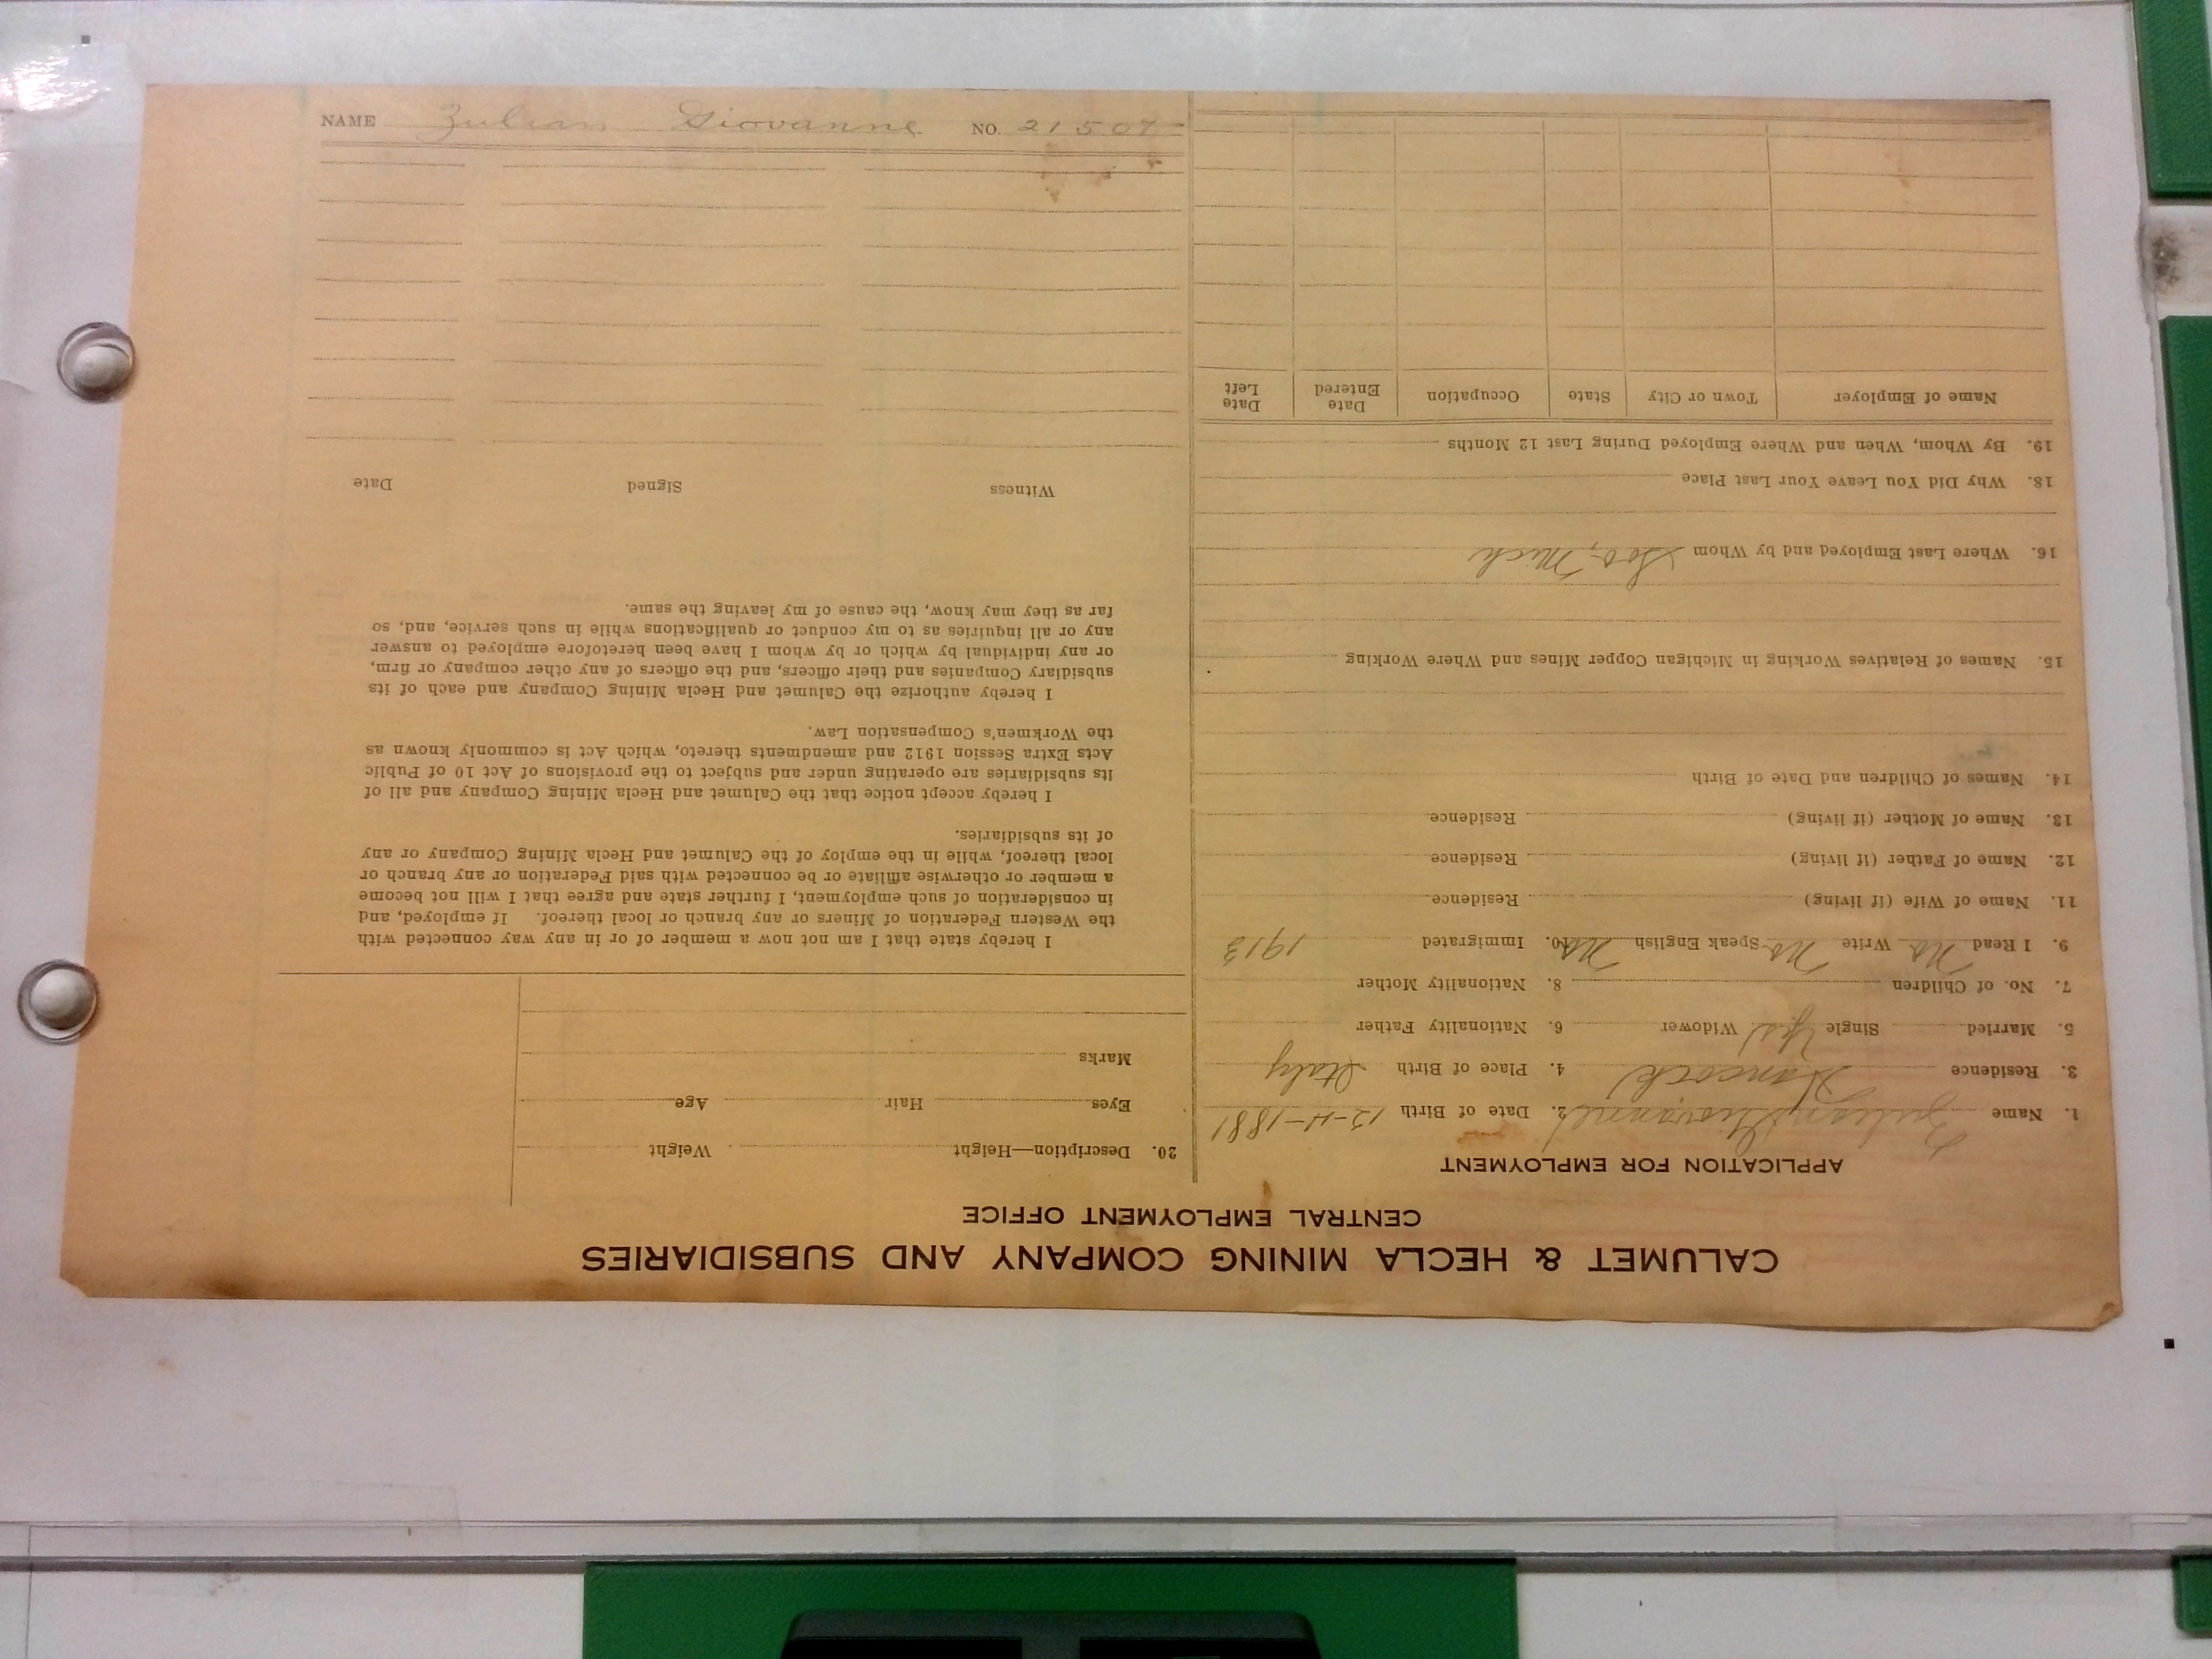 CALUMET & HECLA MINING COMPANY AND SUBSIDIARIES
CENTRAL EMPLOYMENT OFFICE
APPLICATION FOR EMPLOYMENT
1. Name Zulian Giovanne 2. Date of Birth 12-11-1881
3. Residence Hancock 4. Place of Birth Italy
5. Married Single Yes Widower 6. Nationality Father
7. No. of Children 8. Nationality Mother
9. I Read No Write No Speak English No 10. Immigrated 1913
11. Name of Wife (if living) Residence
12. Name of Father (if living) Residence
13. Name of Mother (if living) Residence
14. Names of Children and Date of Birth
15. Names of Relatives Working in Michigan Copper Mines and Where Working
16. Where Last Employed and by Whom Soo, Mich
18. Why Did You Leave Your Last Place
19. By Whom, When and Where Employed During Last 12 Months
Name of Employer Town or City State Occupation Date Entered Date Left
20. Description—Height Weight
Eyes Hair Age
Marks
I hereby state that I am not now a member of or in any way connected with
the Western Federation of Miners or any branch or local thereof. If employed, and
in consideration of such employment, I further state and agree that I will not become
a member or otherwise affiliate or be connected with said Federation or any branch or
local thereof, while in the employ of the Calumet and Hecla Mining Company or any
of its subsidiaries.
I hereby accept notice that the Calumet and Hecla Mining Company and all of
its subsidiaries are operating under and subject to the provisions of Act 10 of Public
Acts Extra Session 1912 and amendments thereto, which Act is commonly known as
the Workmen's Compensation Law.
I hereby authorize the Calumet and Hecla Mining Company and each of its
subsidiary Companies and their officers, and the officers of any other company or firm,
or any individual by which or by whom I have been heretofore employed to answer
any or all inquiries as to my conduct or qualifications while in such service, and, so
far as they may know, the cause of my leaving the same.
Witness Signed Date
NAME Zulian Giovanne NO. 21507